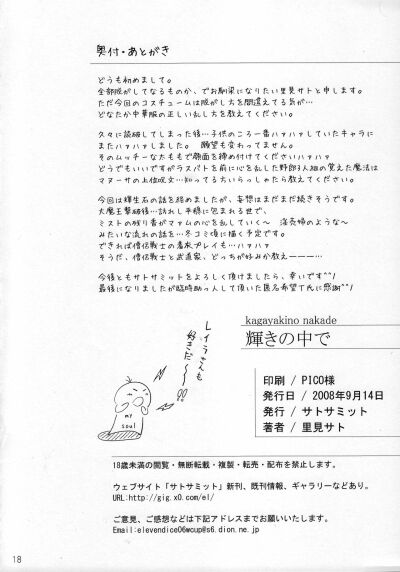 奥付・あとがき
どうも初めまして。
全部脱がしてなるものか、でお馴染になりたい里見サトと申します。
ただ今回のコスチュームは脱がし方を間違えてる気が…
どなたか中華服の正しい乱し方を教えてください。
久々に読破してしまった後…子供のころ一番ハァハァしていたキャラに
またハァハァしました。 願望も変わってません。
そのムッチーな太ももで顔面を締め付けてくださいハァハァ
どうでもいいですがラスバトを前に心を乱した野郎3人組の覚えた魔法は
マヌーサの上位呪文…知ってる方いらっしゃたら教えてください。
今回は輝生系の話を絡めましたが、妄想はまだまだ続きそうです。
大魔王撃破後…訪れし平穏に包まれる世で、
ミストの残り香がマァムの心を乱していく〜
みたいな流れの話を…冬コミ頃に描く予定です。
できれば僧侶戦士の着衣プレイも…ハァハァ
そうだ、僧侶戦士と武道家、どっちが好みか教え――――…
今後ともサトサミットをよろしく頂けましたら、幸いです^^!
最後になりましたが臨時助っ人して頂いた匿名希望Tんに感謝^^!
レイラさんも
好きだ〜〜!!
my
soul
kagayakino nakade
輝きの中で
印刷 / PICO様
発行日 / 2008年9月14日
発行 / サトサミット
著者 / 里見サト
18歳未満の閲覧・無断転載・複製・転売・配布を禁止します。
ウェブサイト「サトサミット」新刊、既刊情報、ギャラリーなどあり。
URL:http://gig.x0.com/el/
ご意見、ご感想などは下記アドレスまでお願いいたします。
Email:elevendice06wcup@s6.dion.ne.jp
18